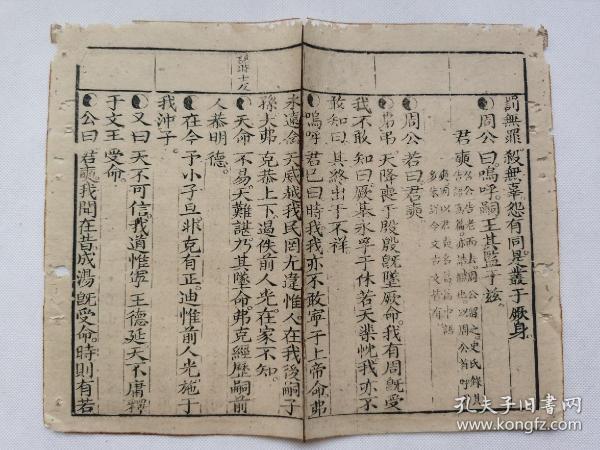 罰無罪殺無辜怨有同是叢于厥身
周公曰嗚呼嗣王其監于茲
君奭
召公告老而去周公留之史氏錄其
告語爲篇亦誥體也以周公首呼君
奭因以君奭名篇篇中語
多未詳今文古文皆有
周公若曰君奭
弗弔天降喪于殷殷旣墜厥命我有周旣受
我不敢知曰厥基永孚于休若天棐忱我亦不
敢知曰其終出于不祥
嗚呼君已曰時我我亦不敢寧于上帝命弗
永遠念天威越我民罔尤違惟人在我後嗣子
孫大弗克恭上下遏佚前人光在家不知
天命不易天難諶乃其墜命弗克經歷嗣前
人恭明德
在今予小子旦非克有正迪惟前人光施于
我沖子
又曰天不可信我道惟寧王德延天不庸釋
于文王受命
公曰君奭我聞在昔成湯旣受命時則有若
孔夫子旧书网
www.kongfz.com